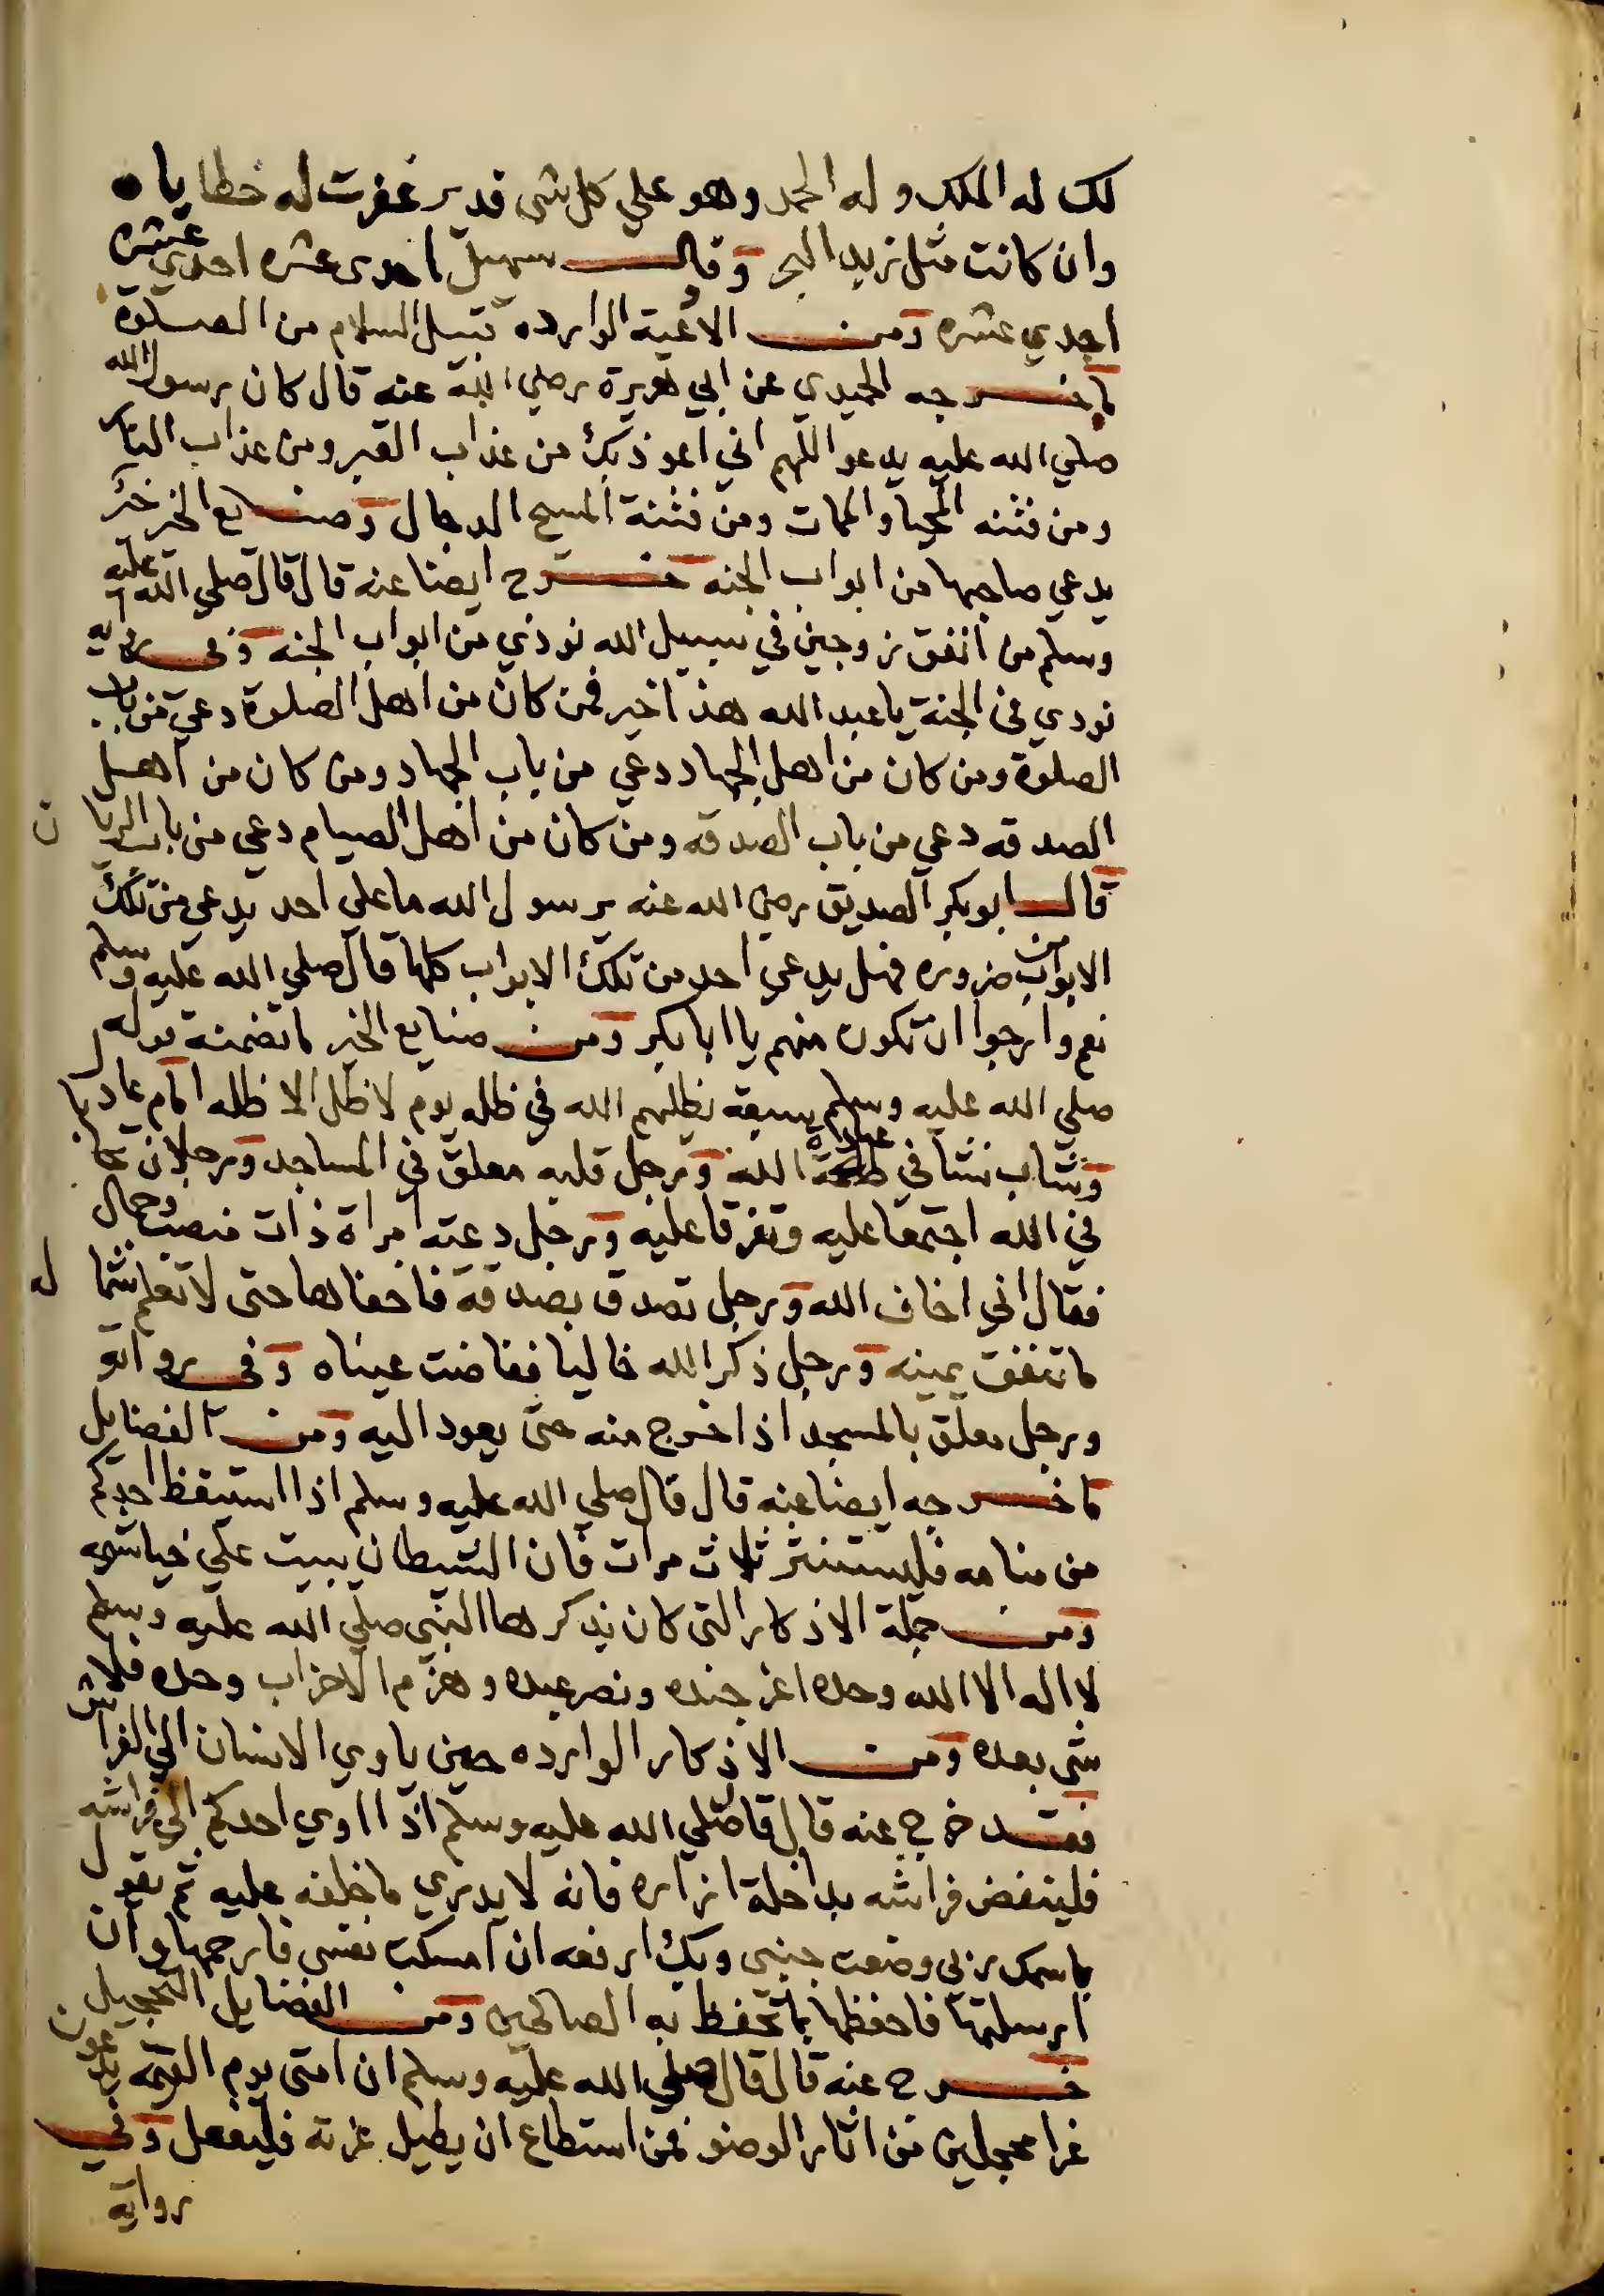 لك له الملك وله الحمد وهو علي كل شى قدير غفرت له خطاياه
وان كانت مثل زبد البحر وقال سهيل احدى عشره احدي عشره
احدي عشره ومن الادعية الوارده قبل السلام من الصلوة
ما خرجه الحميدي عن ابي هريرة رضي الله عنه قال كان رسول الله
صلي الله عليه يدعو اللهم اني اعوذ بك من عذاب القبر ومن عذاب النار
ومن فتنه المحيا والممات ومن فتنة المسيح الدجال وصنايع الخير
يدعي صاحبها من ابواب الجنه خرج ايضا عنه قال قال صلي الله عليه
وسلم من انفق زوجين في سبيل الله نودي من ابواب الجنه وفي رواية
نودي في الجنة يا عبد الله هذا خير فمن كان من اهل الصلوة دعي من باب
الصلوة ومن كان من اهل الجهاد دعي من باب الجهاد ومن كان من اهل
الصدقه دعي من باب الصدقه ومن كان من اهل الصيام دعي من باب الريان
قال ابو بكر الصديق رضي الله عنه يرسول الله ما علي احد يدعي من تلك
الابواب من ضروره فهل يدعي احد من تلك الابواب كلها قال صلي الله عليه وسلم
نعم وارجوا ان تكون منهم يا ابا بكر ومن صنايع الخير ما تضمنه قوله
صلي الله عليه وسلم سبعة يظلهم الله في ظله يوم لا ظل الا ظله امام عادل
وشاب نشا في عبادة الله ورجل قلبه معلق في المساجد ورجلان تحابا
في الله اجتمعا عليه وتفرقا عليه ورجل دعته امراة ذات منصب وجمال
فقال اني اخاف الله ورجل تصدق بصدقة فاخفاها حتى لا تعلم شماله
ما تنفق يمينه ورجل ذكر الله خاليا ففاضت عيناه وفي رواية
ورجل معلق بالمسجد اذا خرج منه حتى يعود اليه ومن الفضايل
ما خرجه ايضا عنه قال قال صلي الله عليه وسلم اذا استيقظ احدكم
من منامه فليستنثر ثلاث مرات فان الشيطان يبيت علي خياشيمه
ومن جملة الاذكار التى كان يذكرها النبى صلي الله عليه وسلم
لا اله الا الله وحده اعز جنده ونصر عبده وهزم الاحزاب وحده فلا
شى بعده ومن الاذكار الوارده حين ياوي الانسان الي الفراش
فقد خرج عنه قال قال صلي الله عليه وسلم اذا اوي احدكم الي فراشه
فلينفض فراشه بداخلة ازاره فانه لا يدري ما خلفه عليه ثم يقول
باسمك ربي وضعت جنبى وبك ارفعه ان امسكت نفسى فارحمها وان
ارسلتها فاحفظها بما تحفظ به الصالحين ومن الفضايل التحجيل
خرج عنه قال قال صلي الله عليه وسلم ان امتى يوم القيمه يدعون
غرا محجلين من اثار الوضو فمن استطاع ان يطيل غرته فليفعل وفي
رواية